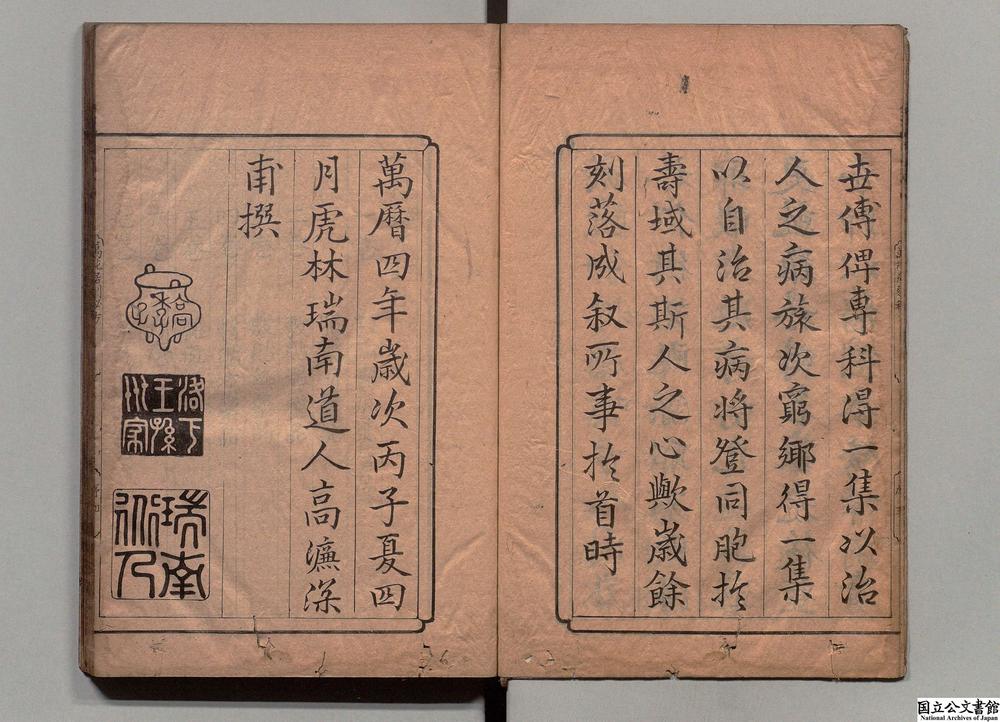 世傳俾專科得一集以治
人之病旅次窮鄉得一集
以自治其病將登同胞於
壽域其斯人之心歟歲餘
刻落成叙所事於首時
萬曆四年歲次丙子夏四
月虎林瑞南道人高濂深
甫撰
洛下
王孫
瑞南
国立公文書館
National Archives of Japan